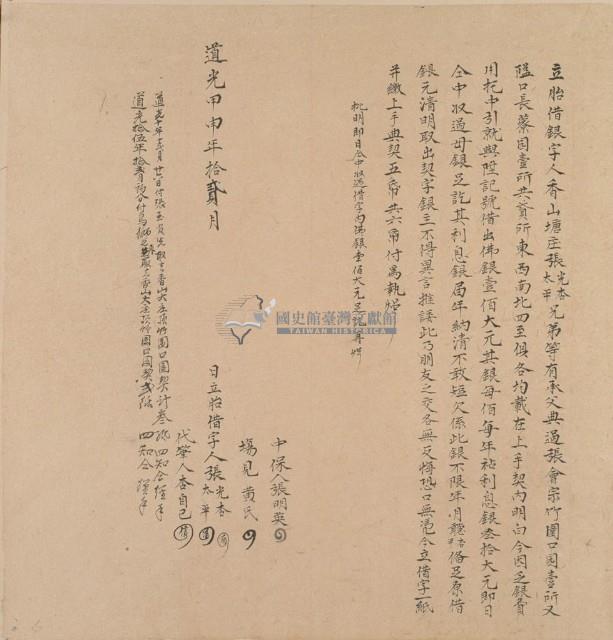 立胎借銀字人香山塘庄張光杏太平兄弟等有承父典過張會宗竹圍口園壹所又
隘口長蓁園壹所共貳所東西南北四至俱各均載在上手契內明白今因乏銀費
用托中引就與陞記號借出佛銀壹佰大元其銀每佰每年祐利息銀叁拾大元即日
仝中收過母銀足訖其利息銀屆年納清不敢短欠係此銀不限年月聽杏備足原借
銀元清明取出契字銀主不得異言推諉此乃朋友之交各無反悔恐口無憑今立借字一紙
并繳上手典契五帋共六帋付為執炤
批明即日仝中收過借字內佛銀壹佰大元足訖再炤
中保人張明英
場見黃氏
道光甲申年拾貳月 日立胎借字人張光杏太平
代筆人杏自己
道光 年 月廿 日付張 取去香山大庄 竹圍口園契計叁 四知仝經手
道光拾伍年拾貳月 付 取去香山大庄 竹圍口園契 四知仝經手
國史館臺灣文獻館
TAIWAN HISTORICA